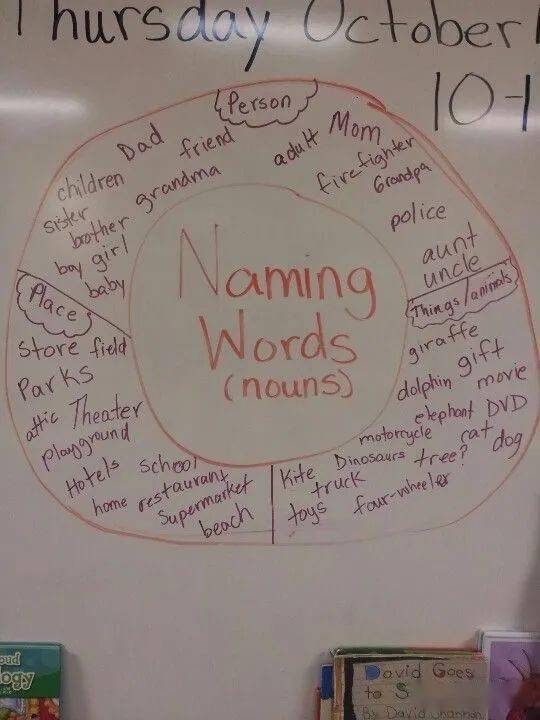 Thursday October
10-1
Person
Dad
friend
adult
Mom
firefighter
Grandpa
children
grandma
sister
brother
boy girl
baby
police
aunt
uncle
Naming
Words
(nouns)
Place
Store field
Parks
attic Theater
playground
Hotels school
home restaurant
Supermarket
beach
Things/animals
giraffe
gift
dolphin movie
elephant DVD
motorcycle cat dog
Kite Dinosaurs tree?
truck
toys four-wheeler
David Goes
to S
By David Shannon
oud
logy